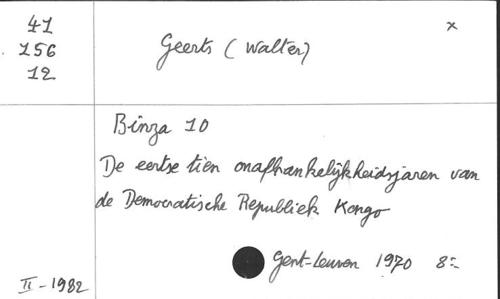 41
156
12
Geerts (Walter)
x
Binza 10
De eertse tien onafhankelijkheidsjaren van
de Democratische Republiek Kongo
Gent-Leuven 1970 8:-
II-1982